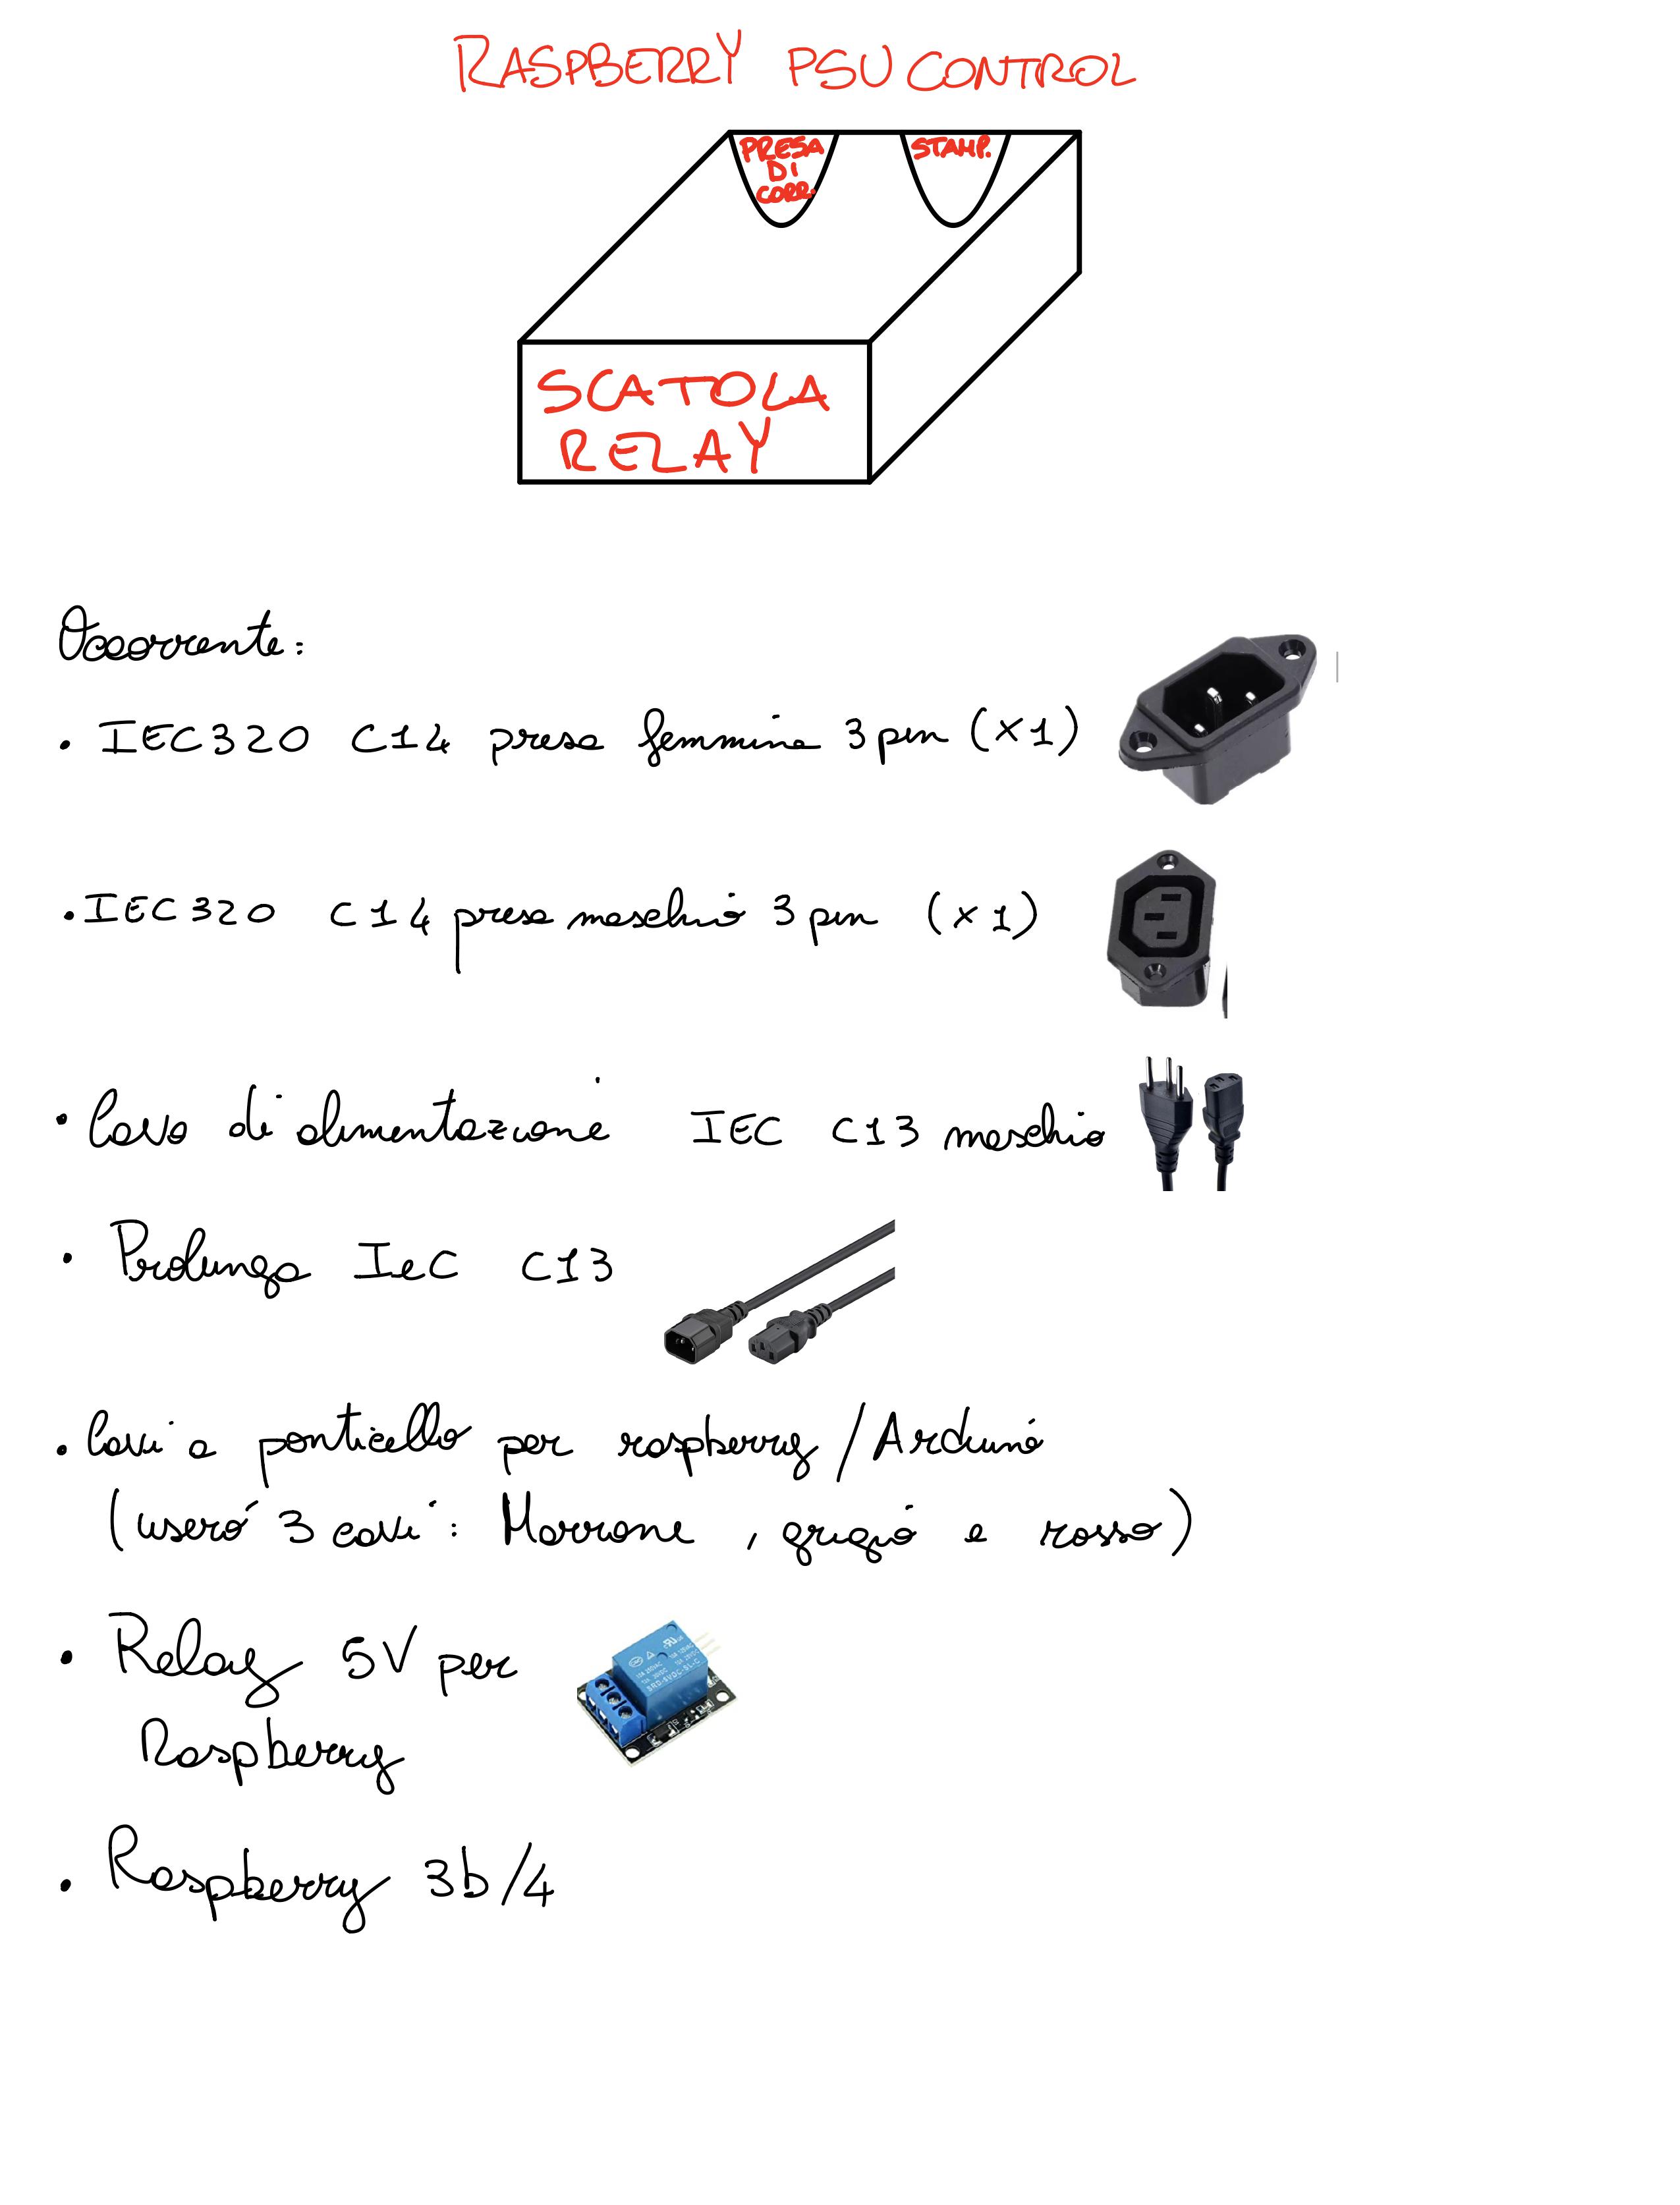 RASPBERRY PSU CONTROL
PRESA
DI
CORR.
STAMP.
SCATOLA
RELAY
Occorrente:
• IEC320 C14 presa femmina 3 pin (x1)
• IEC320 C14 presa maschio 3 pin (x1)
• Cavo di alimentazione IEC C13 maschio
• Prolunga IeC C13
• Cavi a ponticello per raspberry/Arduino
(userò 3 cavi: Marrone, grigio e rosso)
• Relay 5V per
Raspberry
• Raspberry 3b/4